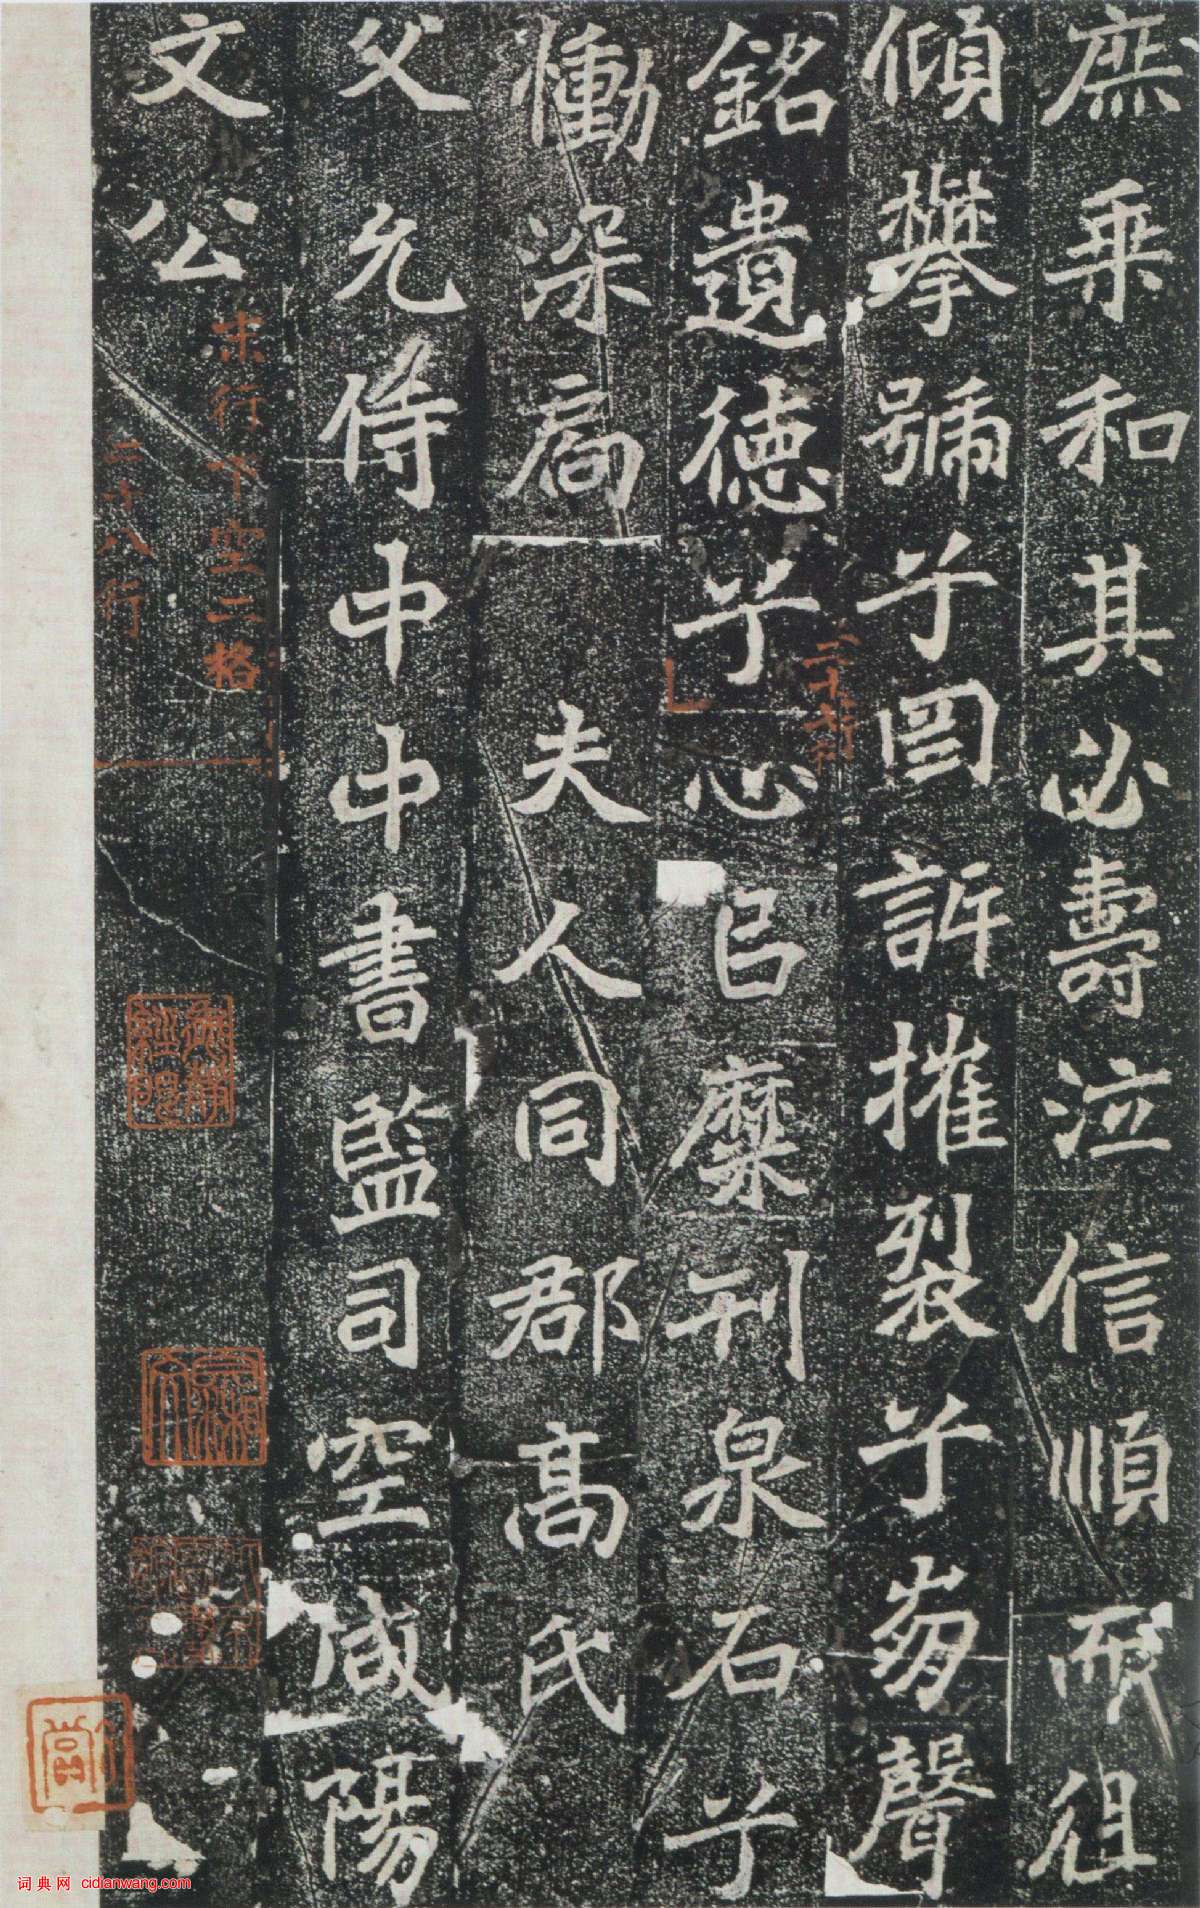 庶乘和其必壽泣信順而徂
傾攀號兮罔訴摧裂兮崩聲
二十七行
銘遺德兮心㠯糜刊泉石兮
慟深扃 夫人同郡高氏
父允侍中中書監司空咸陽
文公
末行下空二格
二十八行
词典网 cidianwang.com